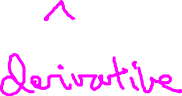 ^
derivative